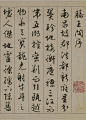 滕王閣序
南昌故郡洪都新府星分
翼軫地接衡廬襟三江而帶
五湖控蠻荊而引甌越
物華天寶龍光射牛斗之
墟人傑地靈徐孺下陳